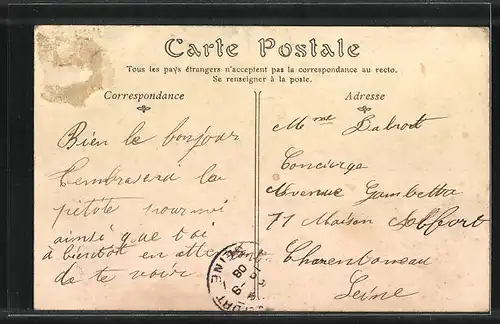 Carte Postale
Tous les pays étrangers n'acceptent pas la correspondance au recto.
Se renseigner à la poste.
Correspondance
Bien le bonjour
la
pitote pour moi
ainsi que toi
à bientot en atte
de te voir
Adresse
Mme Labrodt
Concierge
Avenue Gambetta
77 Maison Alffort
Charentoneau
Seine
SEINE